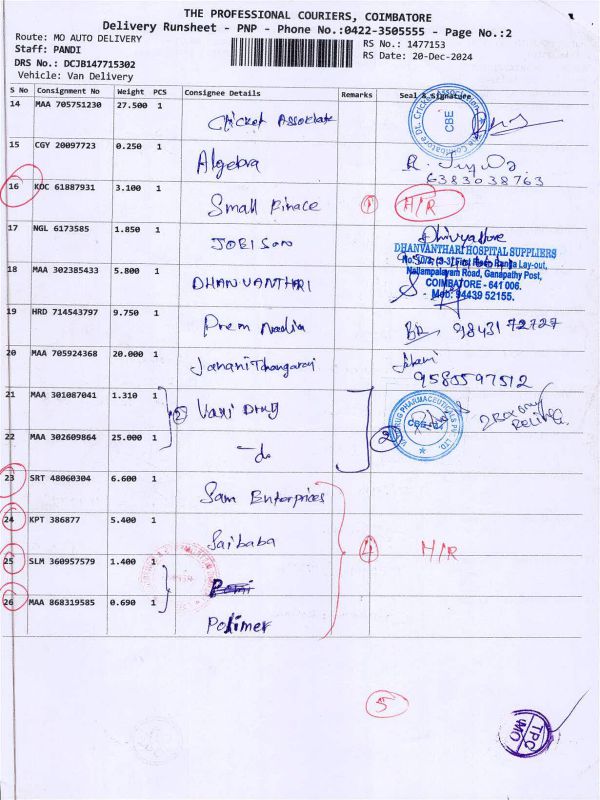 THE PROFESSIONAL COURIERS, COIMBATORE
Delivery Runsheet - PNP - Phone No.:0422-3505555 - Page No.:2
Route: MO AUTO DELIVERY
Staff: PANDI
RS No.: 1477153
DRS No.: DCJB147715302
RS Date: 20-Dec-2024
Vehicle: Van Delivery
S No Consignment No Weight PCS Consignee Details Remarks Seal & Signature
14 MAA 705751230 27.500 1 Cricket Assosiate
CBE
15 CGY 20097723 0.250 1 Algebra
6383038763
16 KOC 61887931 3.100 1 Small Finace 1 H/R
17 NGL 6173585 1.850 1
DHANVANTHARI HOSPITAL SUPPLIERS
Nallampalayam Road, Ganapathy Post,
COIMBATORE - 641 006.
Mob: 94439 52155.
18 MAA 302385433 5.800 1 DHANVANTHARI
19 HRD 714543797 9.750 1 Prem 98431 72727
20 MAA 705924368 20.000 1 Janani Thangaraj
9585597512
21 MAA 301087041 1.310 1 2 Vaxi Drug
2
22 MAA 302609864 25.000 1 - do
23 SRT 48060304 6.600 1 Sam Enterprices
24 KPT 386877 5.400 1 Saibaba 4 H/R
25 SLM 360957579 1.400 1
26 MAA 868319585 0.690 1 Polimer
5
TPC
MO